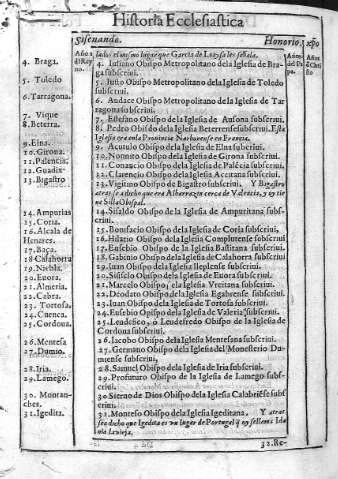 Historia Ecclesiastica
Sisenando.
Honorio. xpo
4. Braga.
4. Iuliano Obispo Metropolitano dela Iglesia de Braga subscriui.
5. Toledo
5. Iusto Obispo Metropolitano dela Iglesia de Toledo subscriui.
6. Tarragona.
6. Audace Obispo Metropolitano dela Iglesia de Tarragona subscriui.
7. Vique
7. Obispo de la Iglesia de Ausona subscriui.
8. Beterra.
8. Pedro Obispo dela Iglesia Beterrense subscriui. Esta Iglesia era en la Prouincia Narbonense en Francia.
9. Elna.
9. Acutulo Obispo dela Iglesia de Elna subscriui.
10. Girona.
10. Nonnito Obispo dela Iglesia de Girona subscriui.
11. Palencia.
11. Conancio Obispo dela Iglesia de Palécia subscriui.
12. Guadix
12. Clarencio Obispo dela Iglesia Accitana subscriui.
13. Bigastro
13. Vigitino Obispo de Bigastro subscriui. Y Bigastro
14. Ampurias
14. Sisaldo Obispo de la Iglesia de Ampuritana subscriui.
15. Coria.
15. Bonifacio Obispo dela Iglesia de Coria subscriui.
16. Alcala de Henares.
16. Hilario Obispo dela Iglesia Complutense subscriui
17. Baça.
17. Eusebio Obispo de la Iglesia Bastitana subscriui.
18 Calahorra
18. Gabinio Obispo dela Iglesia de Calahorra subscriui
19. Niebla.
19. Iuan Obispo dela Iglesia Ileplense subscriui.
20. Euora.
20. Sisisclo Obispo dela Iglesia de Euora subscriui.
21. Almeria.
21. Marcelo Obispo dela Iglesia Vrcitana subscriui.
22. Cabra.
22. Deodato Obispo dela Iglesia Egabrense subscriui.
23. Tortosa.
23. Iuan Obispo dela Iglesia de Tortosa subscriui.
24. Cuenca.
24. Eusebio Obispo dela Iglesia de Valeria subscriui.
25. Cordoua.
25. Leudefico, ó Leudefredo Obispo de la Iglesia de Cordoua subscriui.
26. Mentesa
26. Iacobo Obispo dela Iglesia Mentesana subscriui.
27. Dumio.
27. Germano Obispo dela Iglesia del Monesterio Dumiense subscriui.
28. Iria.
28. Samuel Obispo dela Iglesia de Iria subscriui.
29. Lamego.
29. Profuturo Obispo de la Iglesia de Lamego subscriui.
30. Montanches.
30. Obispo dela Iglesia Calabriése subscriui.
31. Igedita.
31. Montesio Obispo dela Iglesia Igeditana. Y atras se dicho que Igedita es un lugar de Portugal q oy se llama
32. Re-